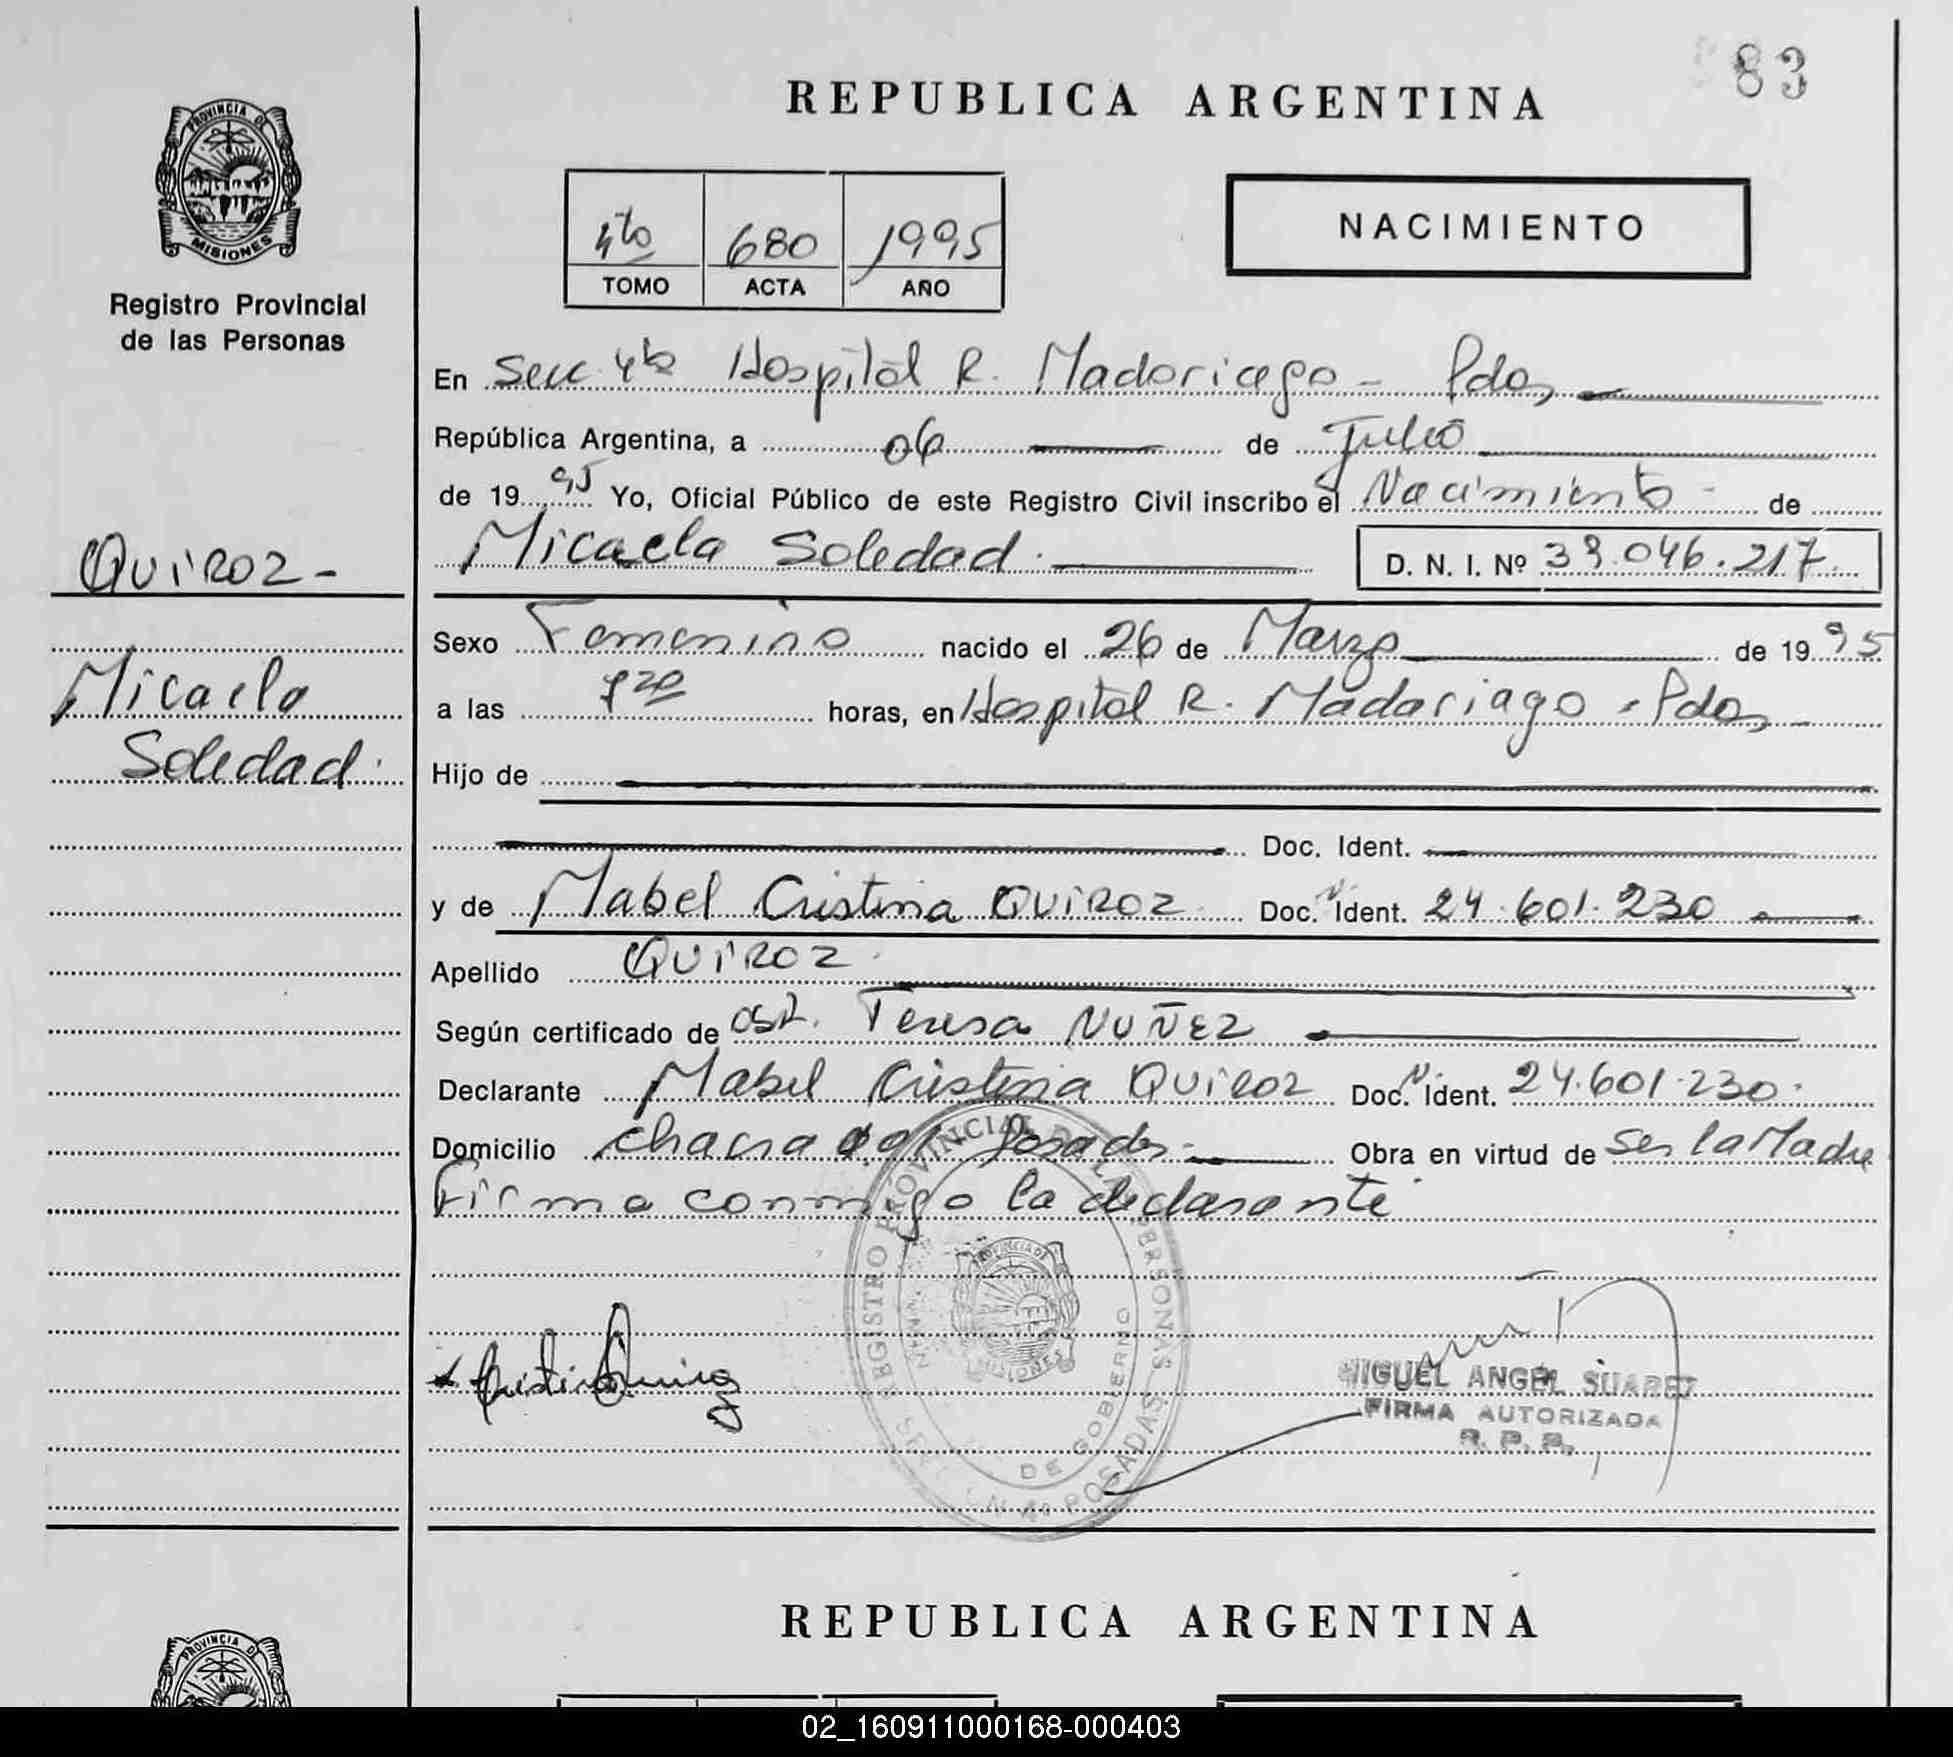 83
REPUBLICA ARGENTINA
PROVINCIA DE
MISIONES
Registro Provincial
de las Personas
4to 680 1995
TOMO ACTA AÑO
NACIMIENTO
En Secc. 4ta Hospital R. Madariaga - Pdas
República Argentina, a 06 de Julio
de 1995 Yo, Oficial Público de este Registro Civil inscribo el Nacimiento - de
Micaela Soledad. D. N. I. Nº 39.046.217
QUIROZ -
Micaela
Soledad.
Sexo Femenino nacido el 26 de Marzo de 1995
a las horas, en Hospital R. Madariaga - Pdas -
Hijo de
Doc. Ident.
y de Mabel Cristina QUIROZ Doc. Ident. 24.601.230
Apellido QUIROZ.
Según certificado de Obst. Teresa NUÑEZ
Declarante Mabel Cristina QUIROZ Doc. Ident. 24.601.230.
Domicilio chacra Posadas - Obra en virtud de Ser la Madre
Firma conmigo la declarante
REGISTRO PROVINCIAL DE LAS PERSONAS
PROVINCIA DE
MISIONES
DE GOBIERNO
POSADAS
Cristina Quiroz
MIGUEL ANGEL SUAREZ
FIRMA AUTORIZADA
R. P. P.
REPUBLICA ARGENTINA
PROVINCIA DE
02_160911000168-000403